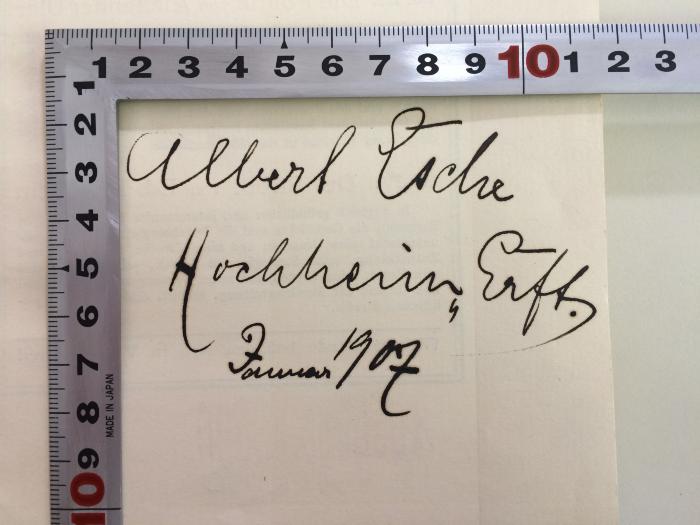 1 2 3 4 5 6 7 8 9 10 1 2 3
1 2 3 4 5 6 7 8 9 10
MADE IN JAPAN
Albert Esche
Hochheim, Erft.
Januar 1907